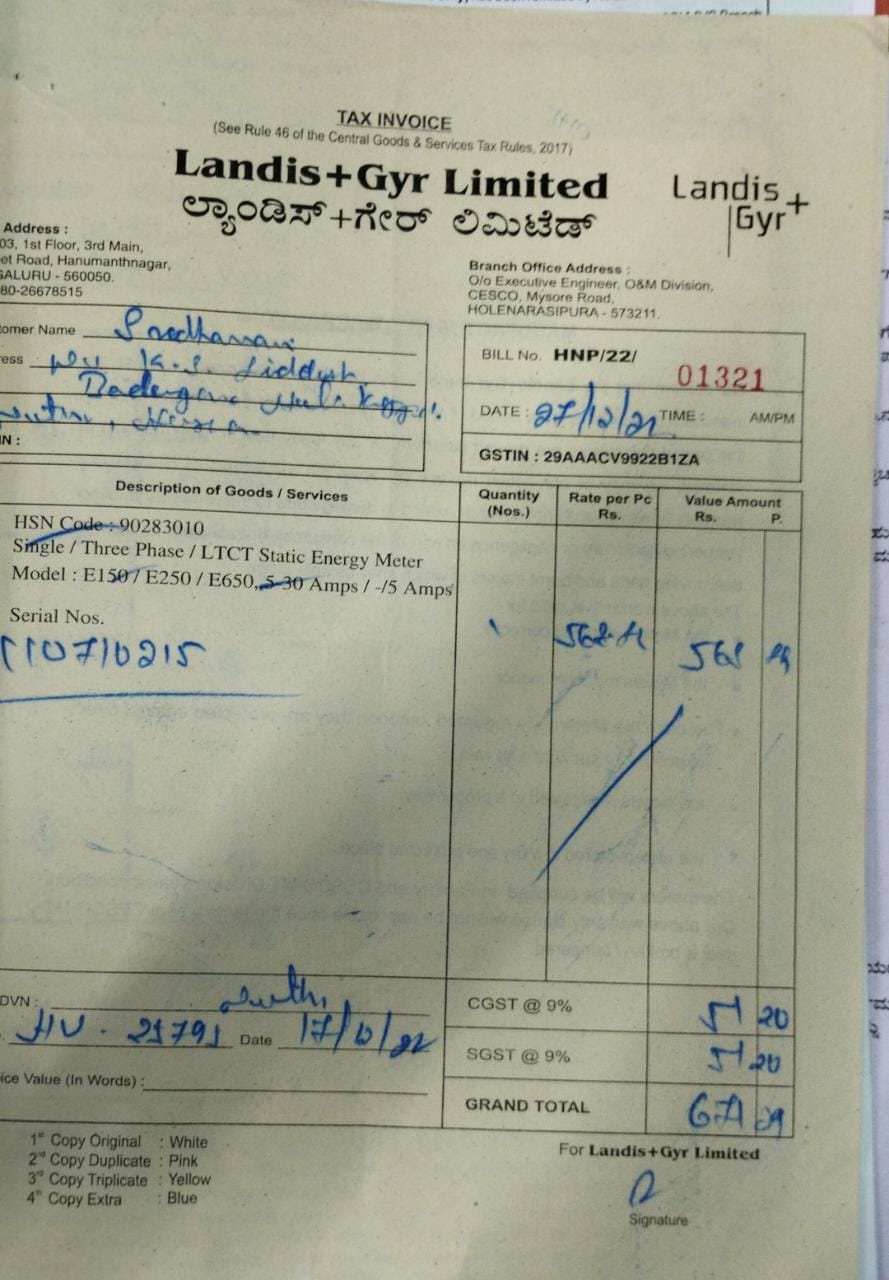 TAX INVOICE
(See Rule 46 of the Central Goods & Services Tax Rules, 2017)
Landis+Gyr Limited
ಲ್ಯಾಂಡಿಸ್+ಗೇರ್ ಲಿಮಿಟೆಡ್
Landis
Gyr+
Address :
03, 1st Floor, 3rd Main,
et Road, Hanumanthnagar,
GALURU - 560050.
80-26678515
Branch Office Address :
O/o Executive Engineer, O&M Division,
CESCO, Mysore Road,
HOLENARASIPURA - 573211.
omer Name
ress
N :
BILL No. HNP/22/ 01321
DATE : 27/12/22 TIME : AM/PM
GSTIN : 29AAACV9922B1ZA
Description of Goods / Services
Quantity (Nos.)
Rate per Pc Rs.
Value Amount Rs. P.
HSN Code : 90283010
Single / Three Phase / LTCT Static Energy Meter
Model : E150 / E250 / E650, 5-30 Amps / -/5 Amps
Serial Nos.
10710215
568
DVN :
Date 17/12/22
ice Value (In Words) :
CGST @ 9% 51 20
SGST @ 9% 51 20
GRAND TOTAL 671
1st Copy Original : White
2nd Copy Duplicate : Pink
3rd Copy Triplicate : Yellow
4th Copy Extra : Blue
For Landis+Gyr Limited
Signature